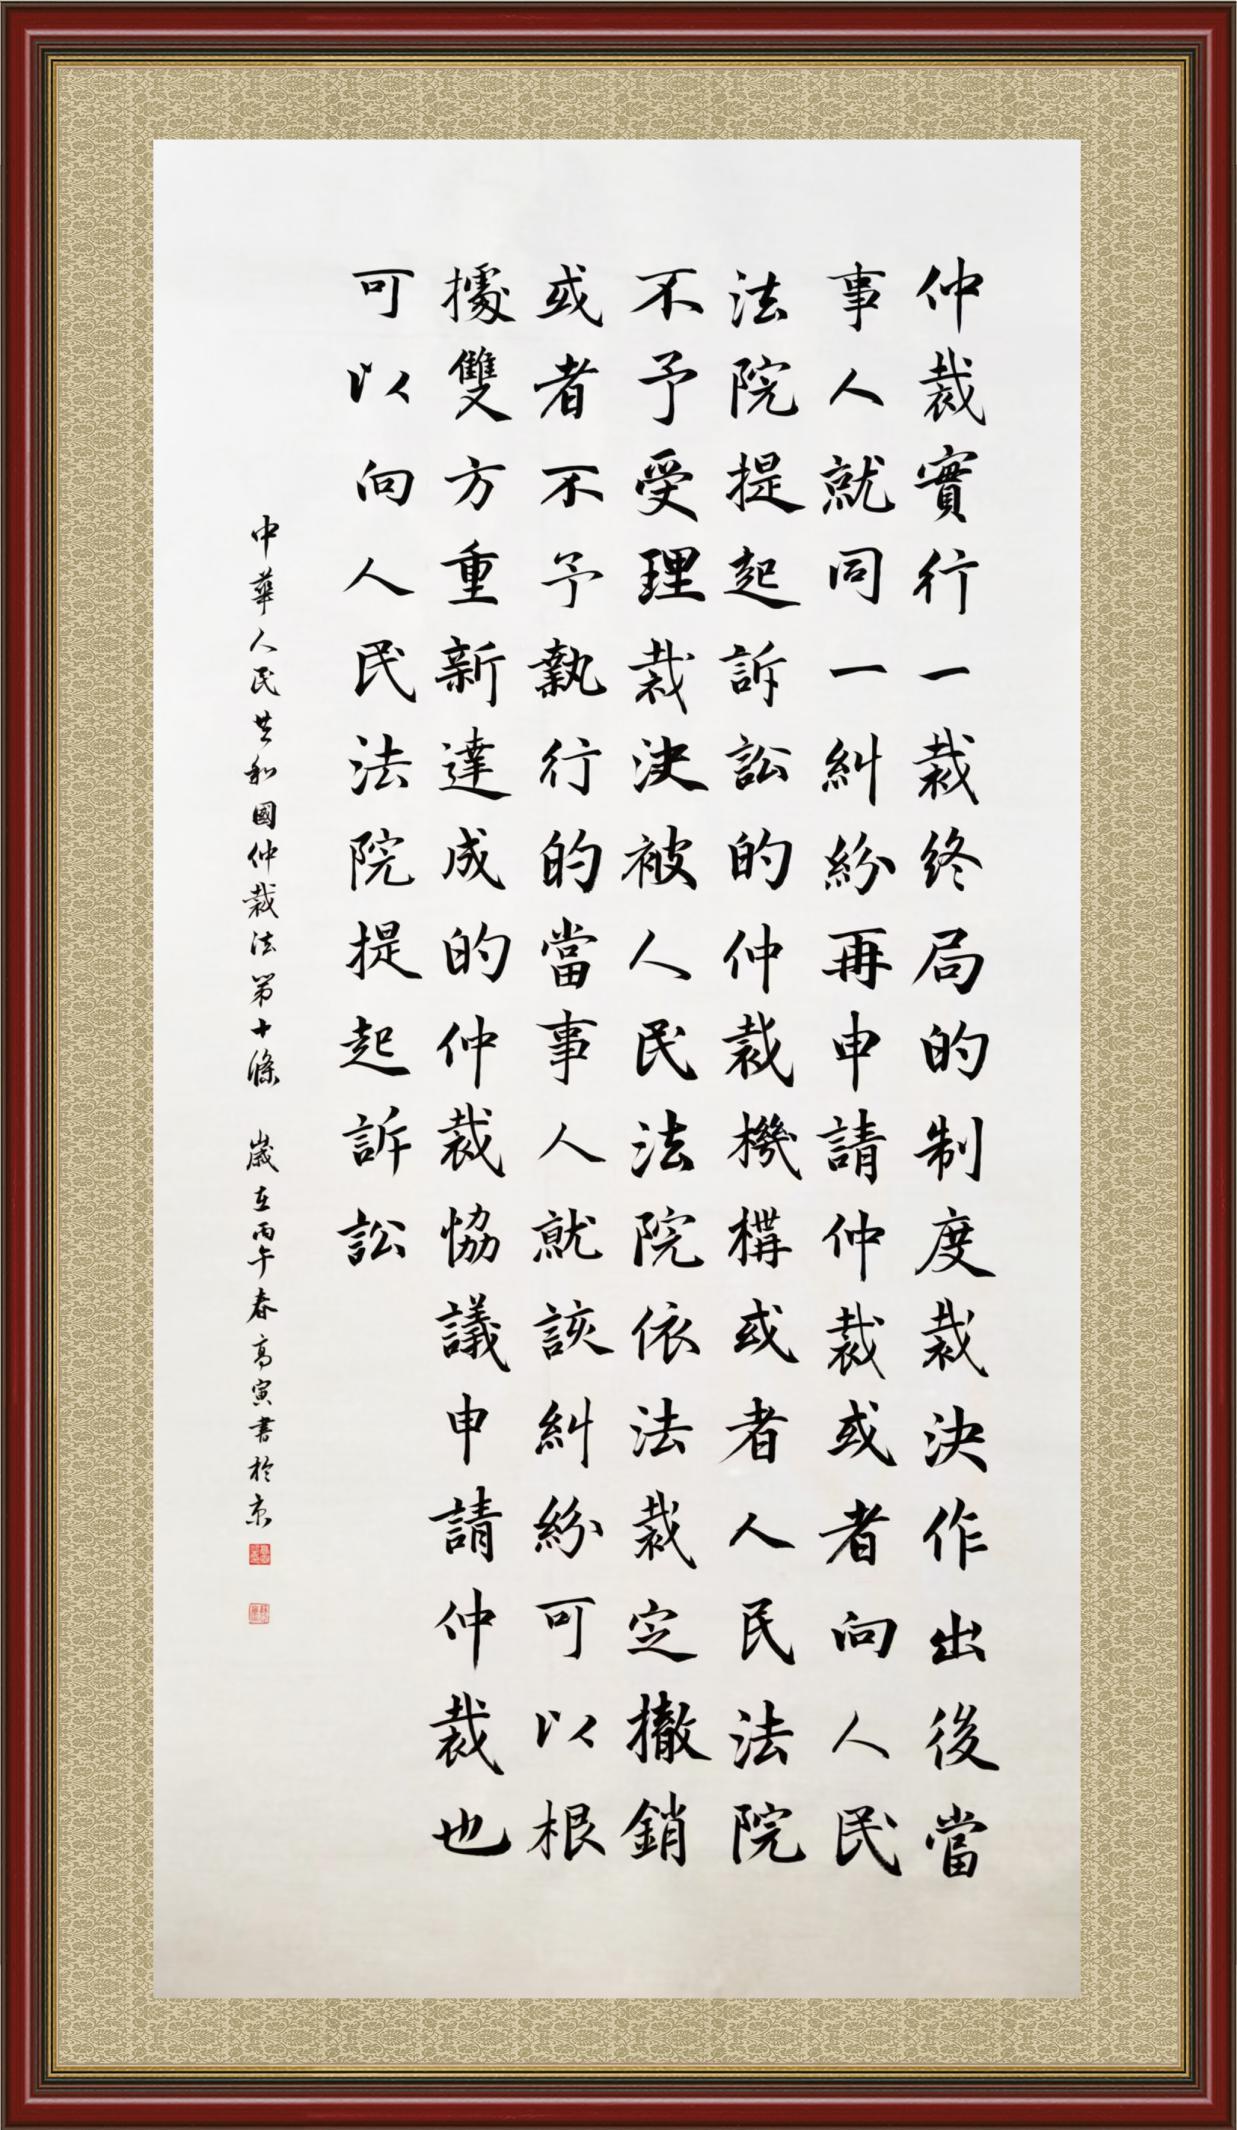 仲裁實行一裁终局的制度裁決作出後當
事人就同一糾紛再申請仲裁或者向人民
法院提起訴訟的仲裁機構或者人民法院
不予受理裁決被人民法院依法裁定撤銷
或者不予執行的當事人就該糾紛可以根
據雙方重新達成的仲裁協議申請仲裁也
可以向人民法院提起訴訟
中華人民共和國仲裁法第十條 歲在丙午春高寅書於京